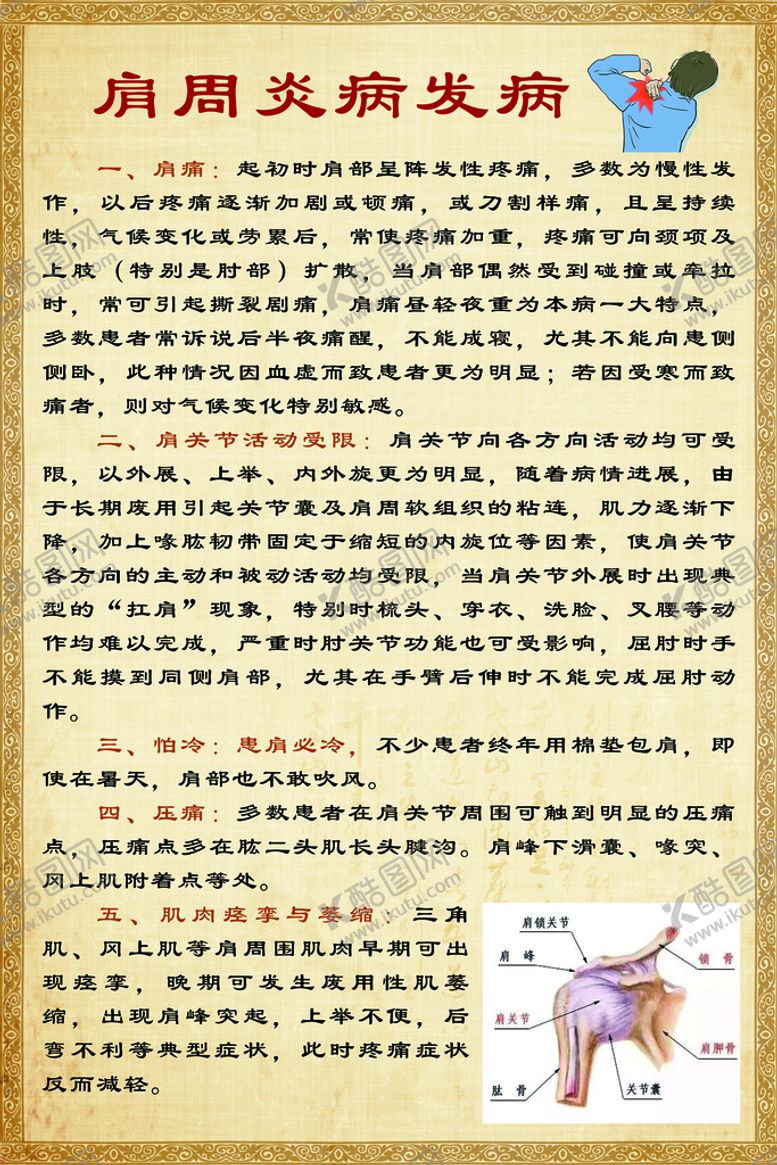 肩周炎病发病
一、肩痛：起初时肩部呈阵发性疼痛，多数为慢性发
作，以后疼痛逐渐加剧或顿痛，或刀割样痛，且呈持续
性，气候变化或劳累后，常使疼痛加重，疼痛可向颈项及
上肢（特别是肘部）扩散，当肩部偶然受到碰撞或牵拉
时，常可引起撕裂剧痛，肩痛昼轻夜重为本病一大特点，
多数患者常诉说后半夜痛醒，不能成寝，尤其不能向患侧
侧卧，此种情况因血虚而致患者更为明显；若因受寒而致
痛者，则对气候变化特别敏感。
二、肩关节活动受限：肩关节向各方向活动均可受
限，以外展、上举、内外旋更为明显，随着病情进展，由
于长期废用引起关节囊及肩周软组织的粘连，肌力逐渐下
降，加上喙肱韧带固定于缩短的内旋位等因素，使肩关节
各方向的主动和被动活动均受限，当肩关节外展时出现典
型的“扛肩”现象，特别时梳头、穿衣、洗脸、叉腰等动
作均难以完成，严重时肘关节功能也可受影响，屈肘时手
不能摸到同侧肩部，尤其在手臂后伸时不能完成屈肘动
作。
三、怕冷：患肩必冷，不少患者终年用棉垫包肩，即
使在暑天，肩部也不敢吹风。
四、压痛：多数患者在肩关节周围可触到明显的压痛
点，压痛点多在肱二头肌长头腱沟。肩峰下滑囊、喙突、
冈上肌附着点等处。
五、肌肉痉挛与萎缩：三角
肌、冈上肌等肩周围肌肉早期可出
现痉挛，晚期可发生废用性肌萎
缩，出现肩峰突起，上举不便，后
弯不利等典型症状，此时疼痛症状
反而减轻。
肩锁关节
肩峰
锁骨
肩关节
肩胛骨
肱骨
关节囊
酷图网
www.ikutu.com